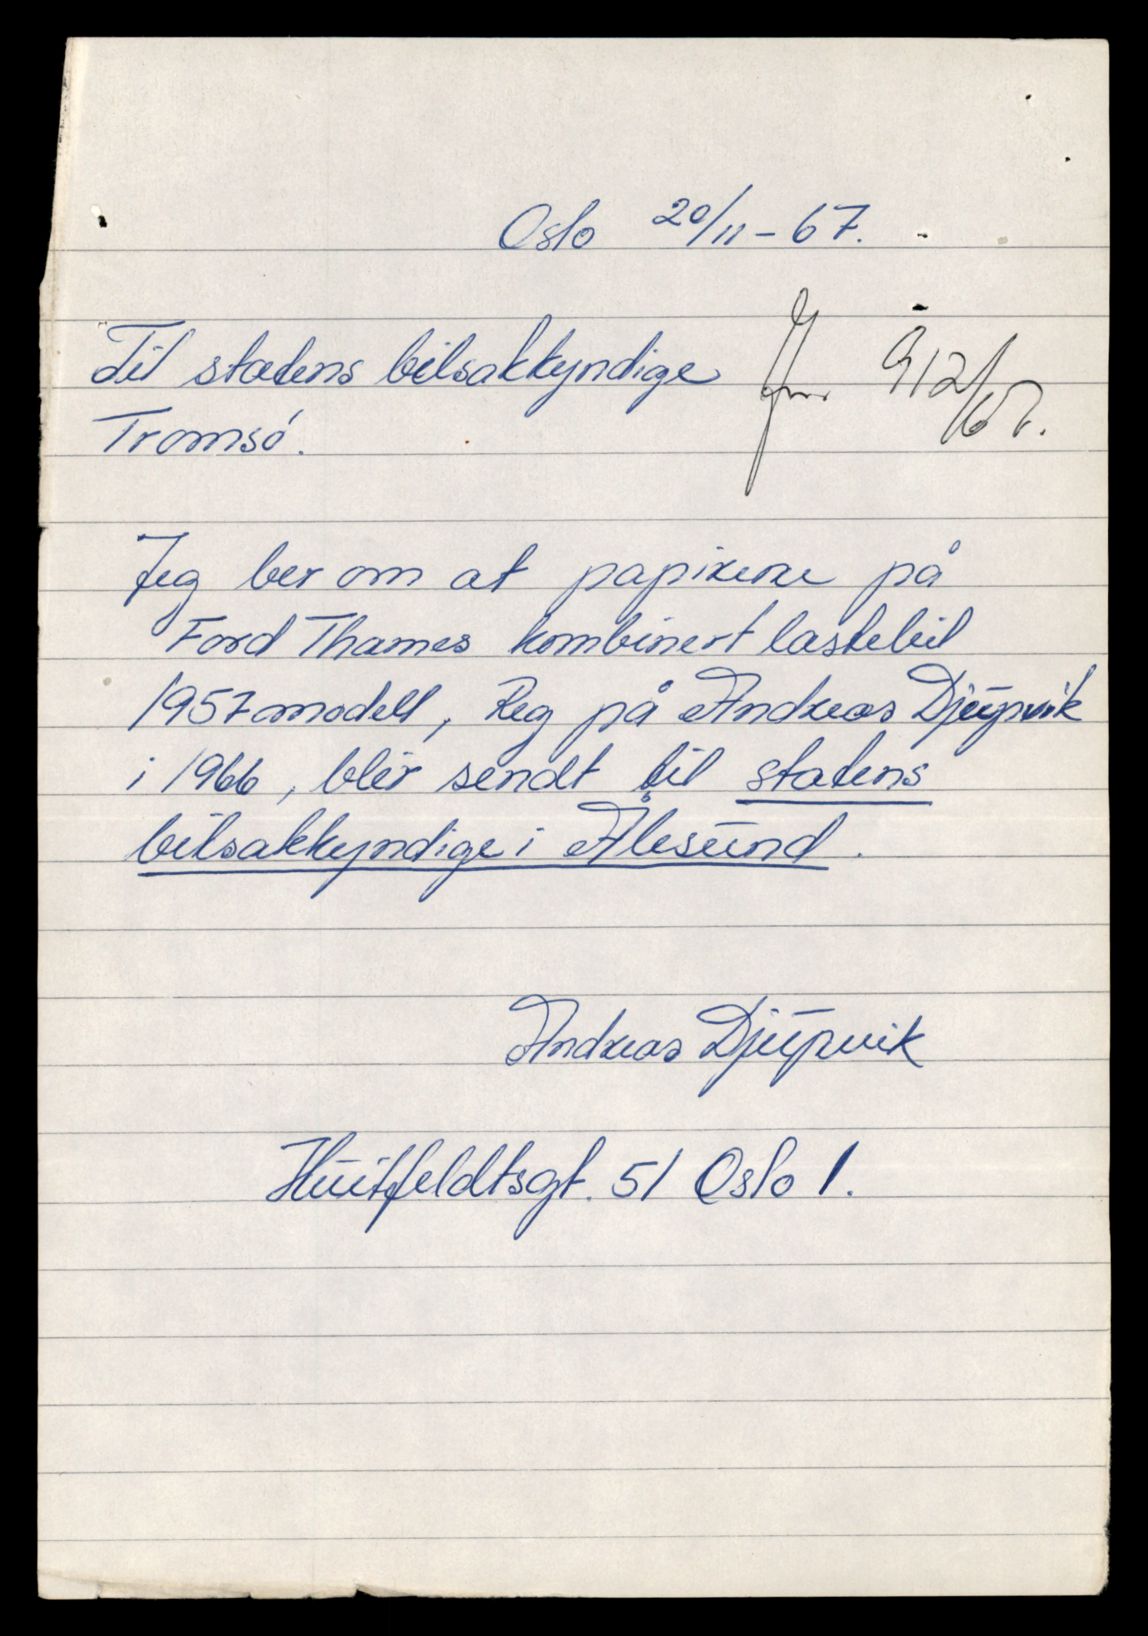 Oslo 20/11-67.
Til statens bilsakkyndige
Tromsø.
9/12/67.
Jeg ber om at papirene på
Ford Thames kombinert lastebil
1957 modell, Reg på Andreas Djupvik
i 1966, blir sendt til statens
bilsakkyndige i Ålesund.
Andreas Djupvik
Huitfeldtsgt. 51 Oslo 1.